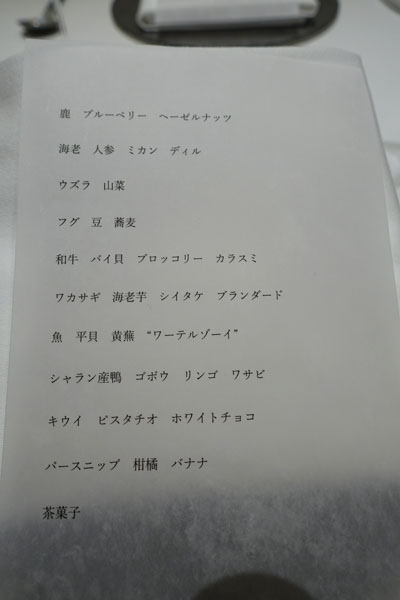 鹿 ブルーベリー ヘーゼルナッツ
海老 人参 ミカン ディル
ウズラ 山菜
フグ 豆 蕎麦
和牛 バイ貝 ブロッコリー カラスミ
ワカサギ 海老芋 シイタケ ブランダード
魚 平貝 黄蕪 “ワーテルゾーイ”
シャラン産鴨 ゴボウ リンゴ ワサビ
キウイ ピスタチオ ホワイトチョコ
パースニップ 柑橘 バナナ
茶菓子